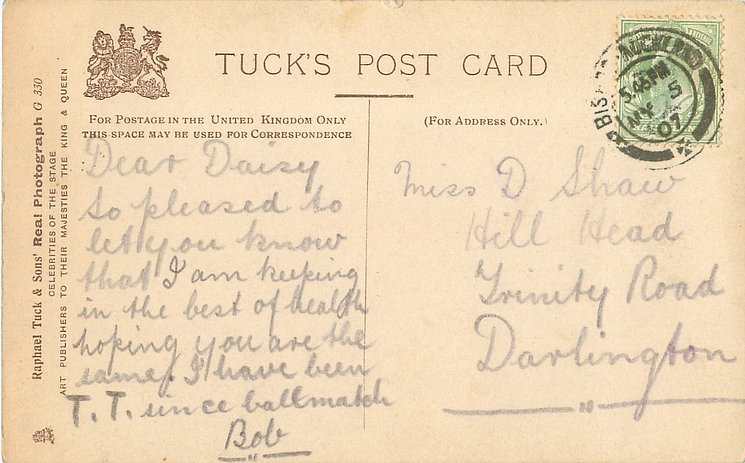 TUCK'S POST CARD
FOR POSTAGE IN THE UNITED KINGDOM ONLY
THIS SPACE MAY BE USED FOR CORRESPONDENCE
(FOR ADDRESS ONLY.)
Raphael Tuck & Sons' Real Photograph G 330
CELEBRITIES OF THE STAGE
ART PUBLISHERS TO THEIR MAJESTIES THE KING & QUEEN
Dear Daisy
so pleased to
let you know
that I am keeping
in the best of health
hoping you are the
same. I have been
T.T. since ballmatch
Bob
Miss D Shaw
Hill Head
Trinity Road
Darlington
AUCKLAND
5.45PM
MY 5
07